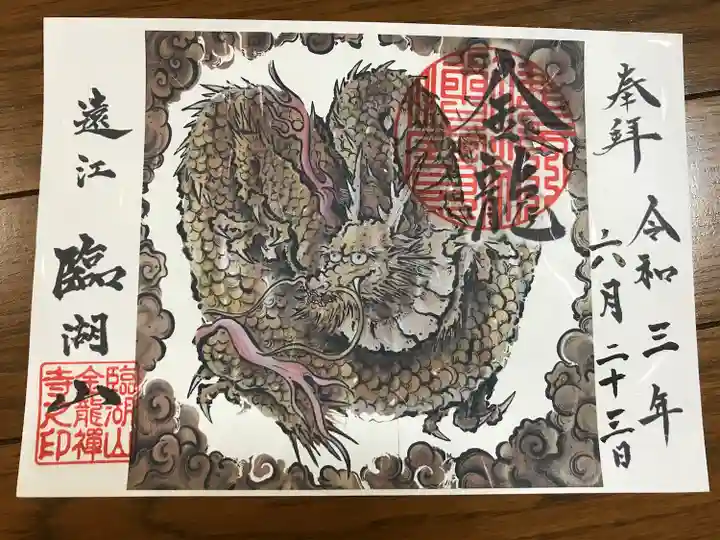 奉拝
令和三年
六月二十三日
龍
遠江
臨湖山
臨湖山
金龍禅
寺之印